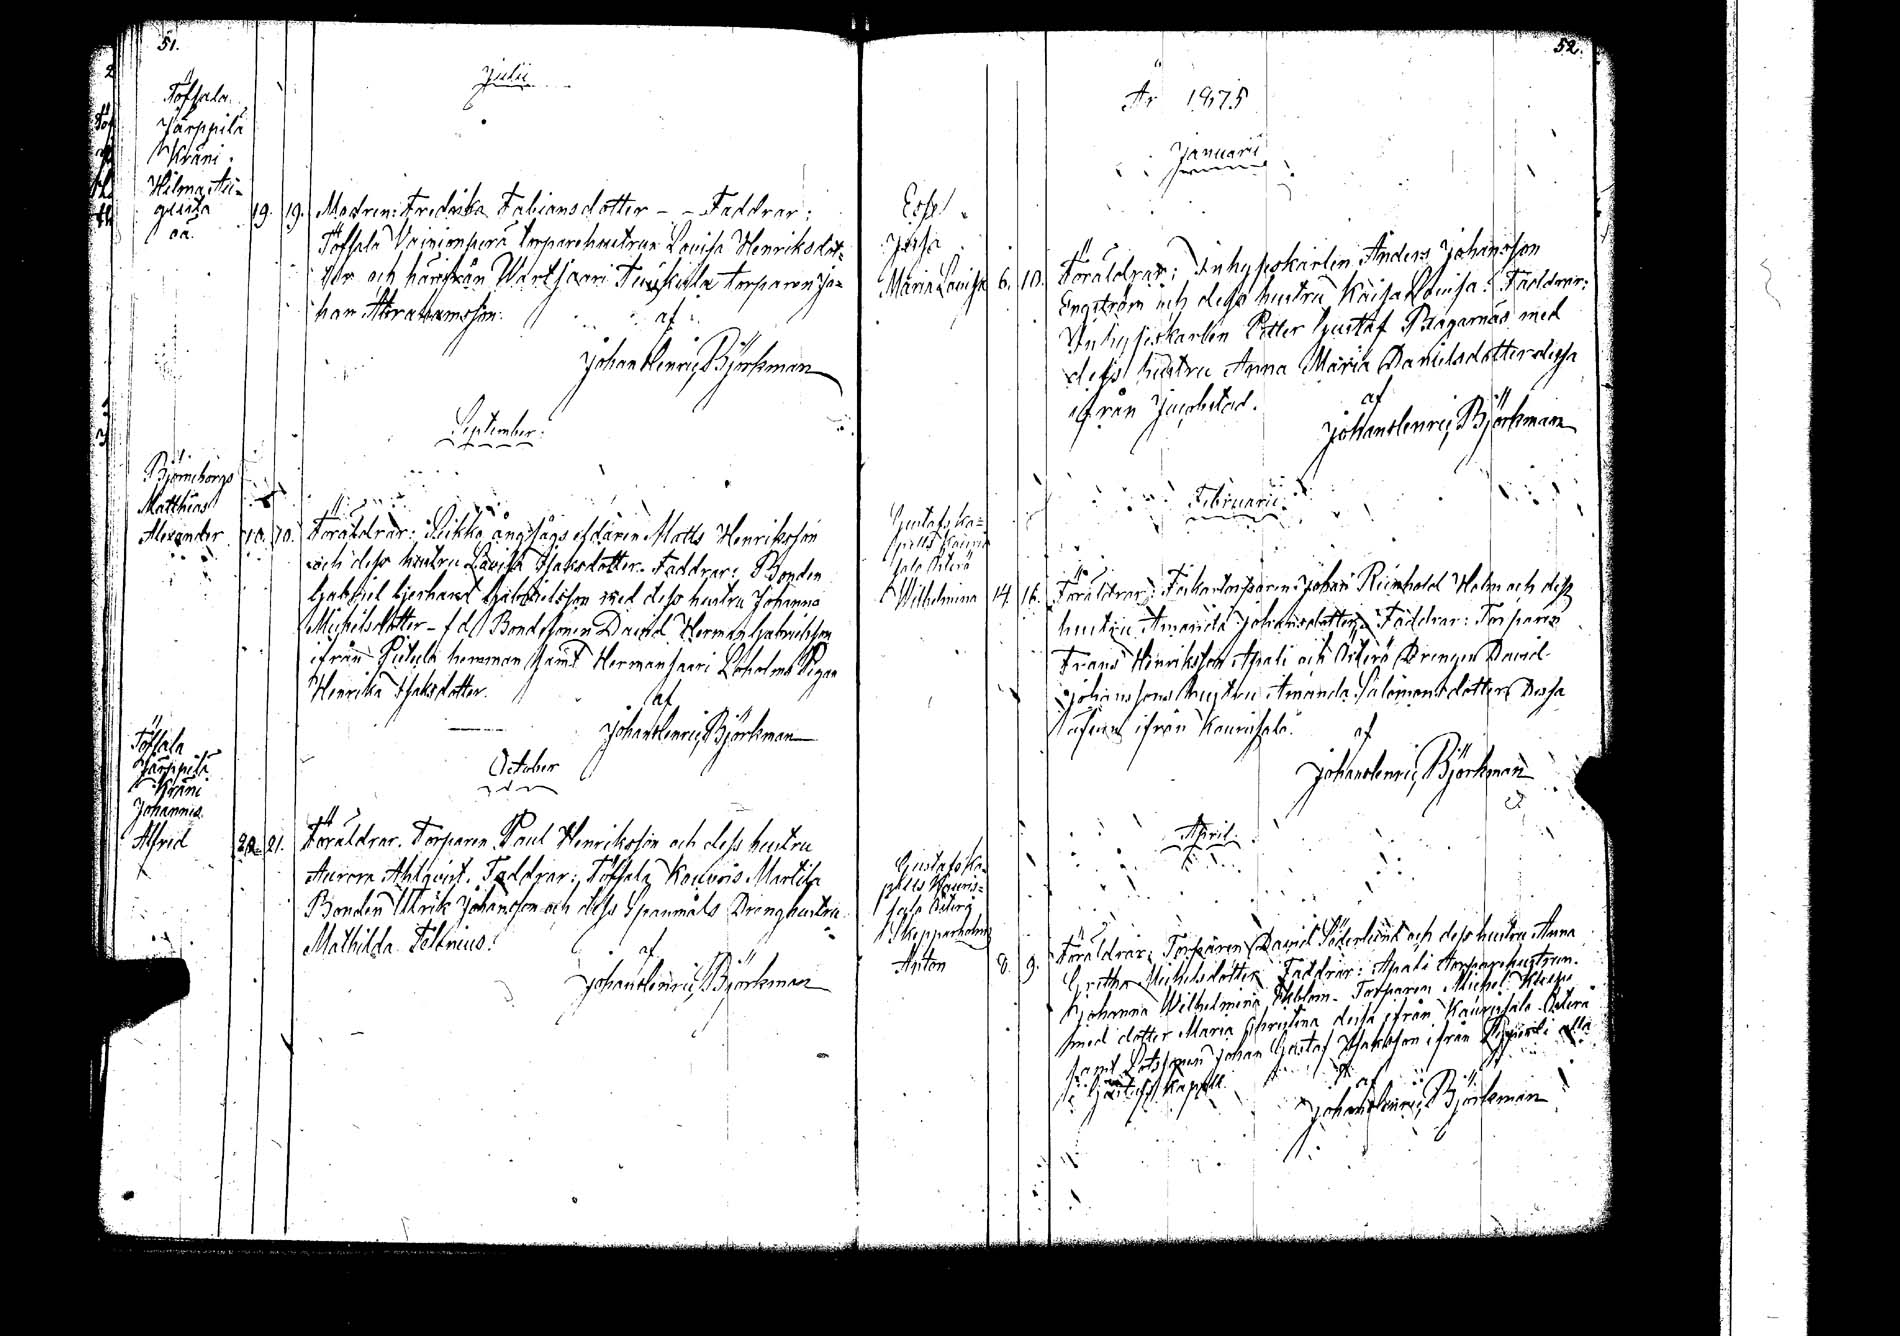 51.
Julii
Töfsala
Järppilä
Kräni
Hilma Au-
gusta
oä.
19. 19. Modren: Fredrika Fabiansdotter - - Faddrar:
Töfsala Vainionperä torparehustrun Lovisa Henriksdot-
ter och härifrån Wartsaari Tuukula torparen Jo-
han Abrahamsson.
af
Johan Henric Björkman
September.
Björneborgs
Matthias
Alexander 10. 10. Föräldrar: Seikko ångsågs eldaren Matts Henriksson
och dess hustru Lovisa Isaksdotter. Faddrar: Bonden
Gabriel Gerhard Gabrielsson med dess hustru Johanna
Michelsdotter - f d Bondesonen David Herman Gabrielsson
ifrån hemman samt Hermansaari Loholma Pigan
Henrika Isaksdotter.
af
Johan Henric Björkman
October
Töfsala
Järppilä
Kräni
Johannis
Alfrid 20. 21. Föräldrar. Torparen Paul Henriksson och dess hustru
Aurora Ahlqvist. Faddrar: Töfsala Kouvois Martila
Bonden Ulrik Johansson och dess Spanmåls Dräng hustru
Mathilda Feltnius.
af
Johan Henric Björkman
52.
År 1875
Januarii
Esse
Maria Lovisa 6. 10. Föräldrar: Inhyseskarlen Anders Johansson
Engström och dess hustru Kaisa Lovisa. Faddrar:
Inhyseskarlen Petter Gustaf Bragarnäs med
dess hustru Anna Maria Danielsdotter dessa
ifrån Jacobstad.
af
Johan Henric Björkman
Februarii
Gustafs ka-
pells Kauris
sala Österö
Wilhelmina 14. 16. Föräldrar: Fiskartorparen Johan Reinhold Holm och dess
hustru Amanda Johansdotter Faddrar: Torparen
Frans Henriksson Apali och Österö Drengen David
Johanssons hustru Amanda Salomonsdotter Dessa
ifrån Kaurissala.
af
Johan Henric Björkman
April.
Gustafs Ka-
pells Kauris-
sala Österö
Skepparholm
Anton 8. 9. Föräldrar: Torparen David Söderlund och dess hustru Anna
Gretha Michelsdotter Faddrar: Apali torparehustrun
Johanna Wilhelmina Ekblom - Torparen Michel
med dotter Maria Christina dessa ifrån Kaurissala Österö
samt Lotssonen Johan Gustaf Isaksson ifrån alla
i Gustafs Kapell
af
Johan Henric Björkman